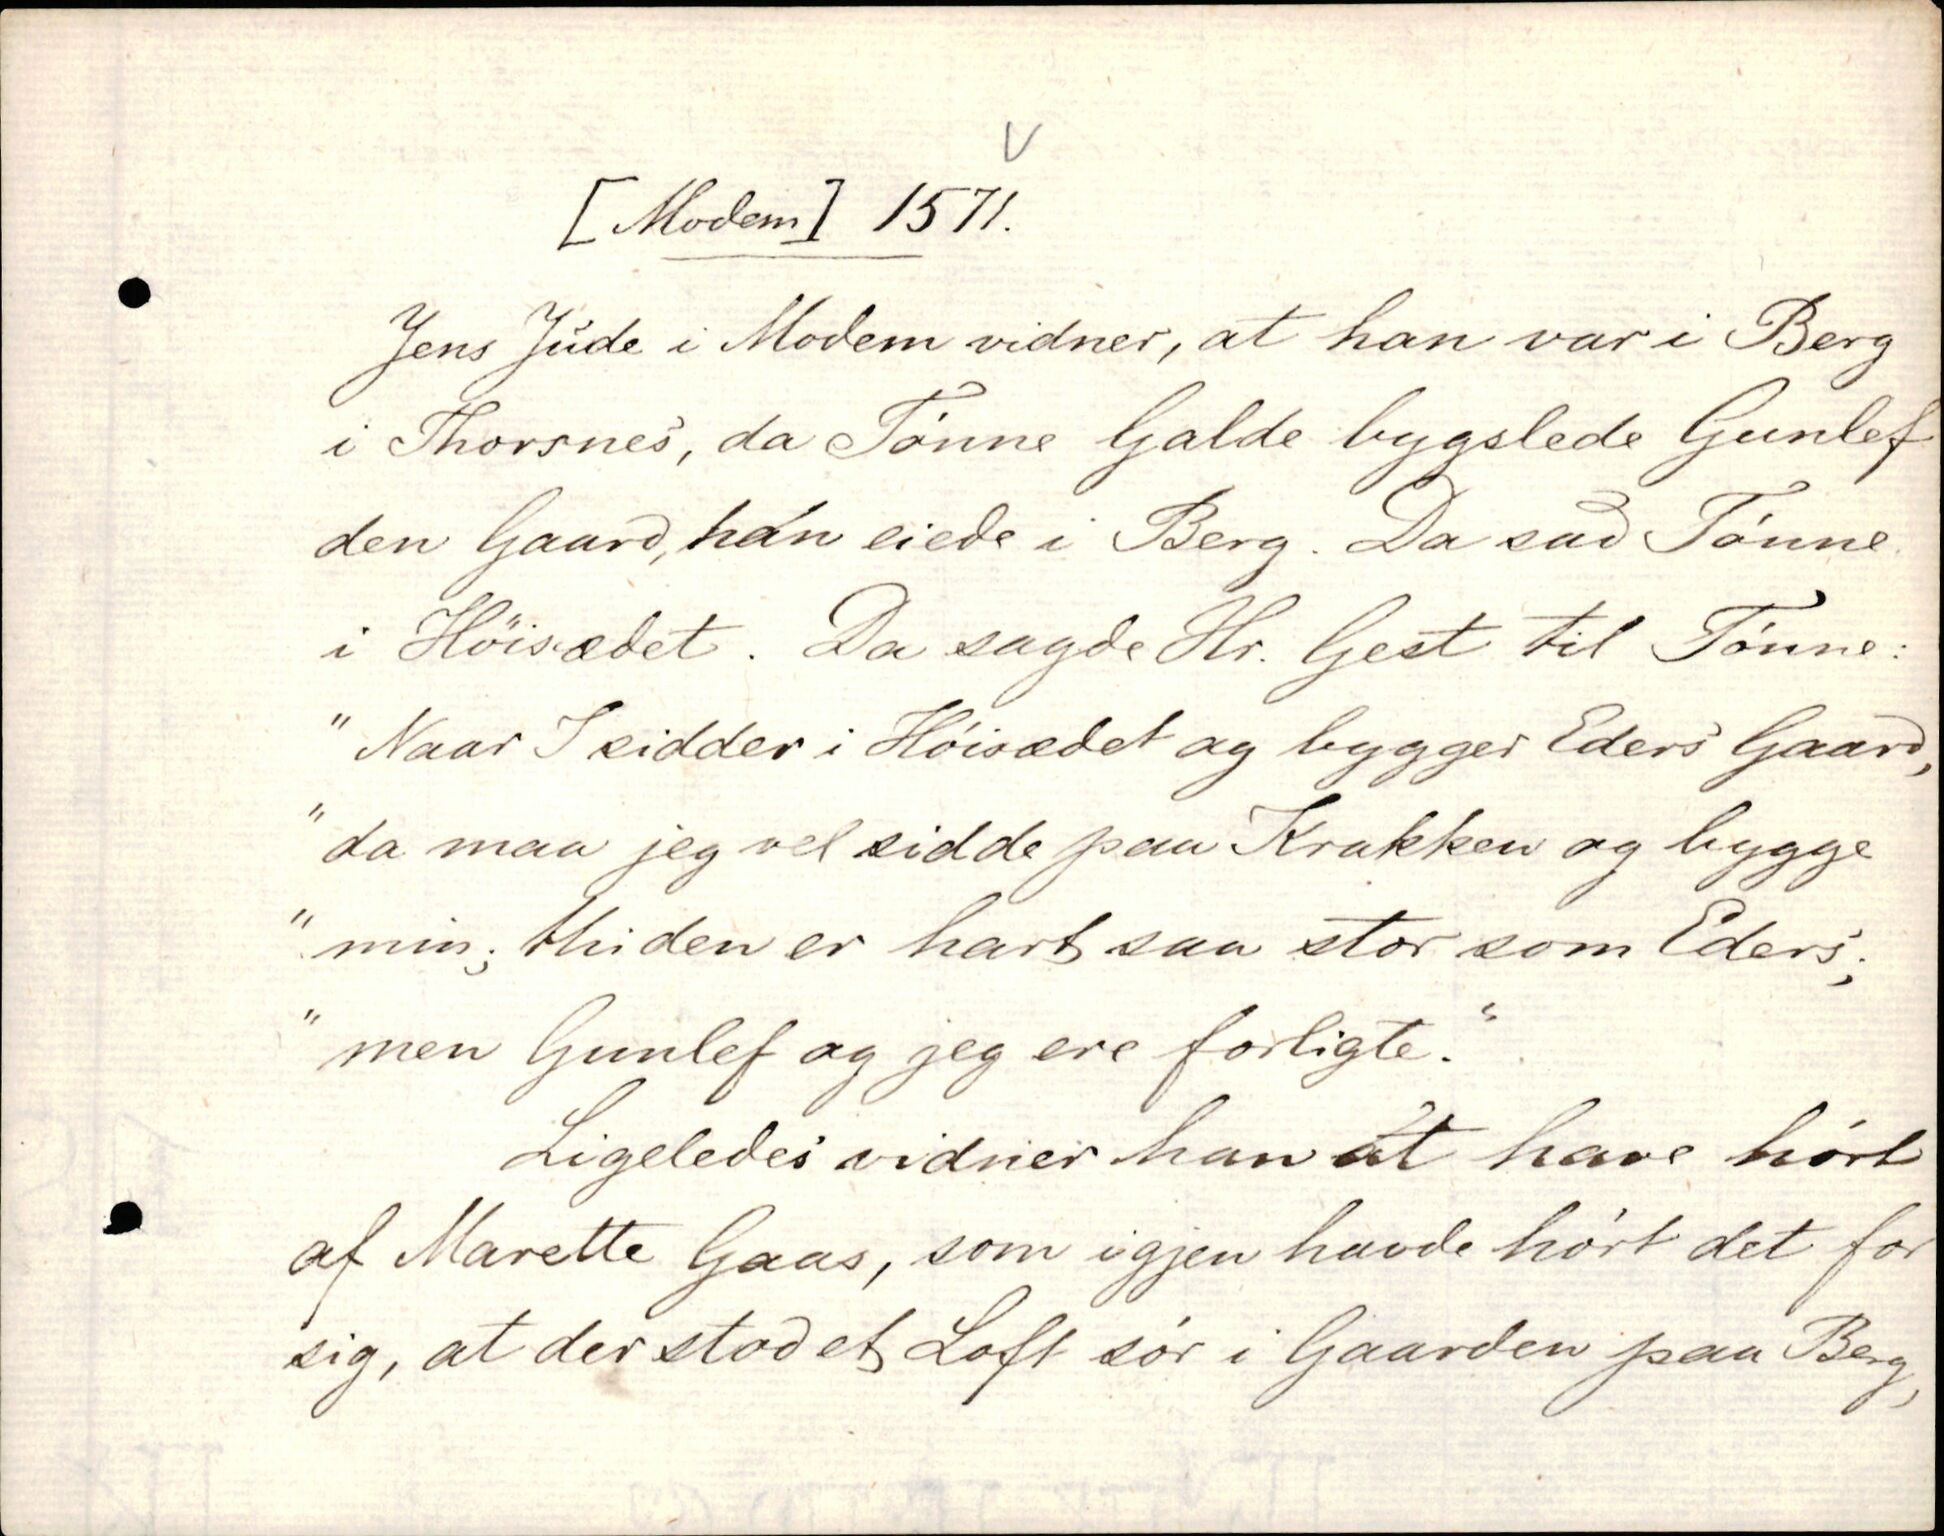 V
[Modem] 1571.
Jens Jude i Modem vidner, at han var i Berg
i Thorsnes, da Tønne Galde bygslede Gunlef
den Gaard, han eiede i Berg. Da sad Tønne
i Höisædet. Da sagde Hr. Gest til Tønne:
"Naar I sidder i Høisædet og bygger Eders Gaard,
"da maa jeg vel sidde paa Krakken og bygge
"min; thi den er hart saa stor som Eders;
"men Gunlef og jeg ere forligte."
Ligeledes vidner han at have hørt
af Marette Gaas, som igjen havde hørt det for
sig, at der stod et Loft sør i Gaarden paa Berg,